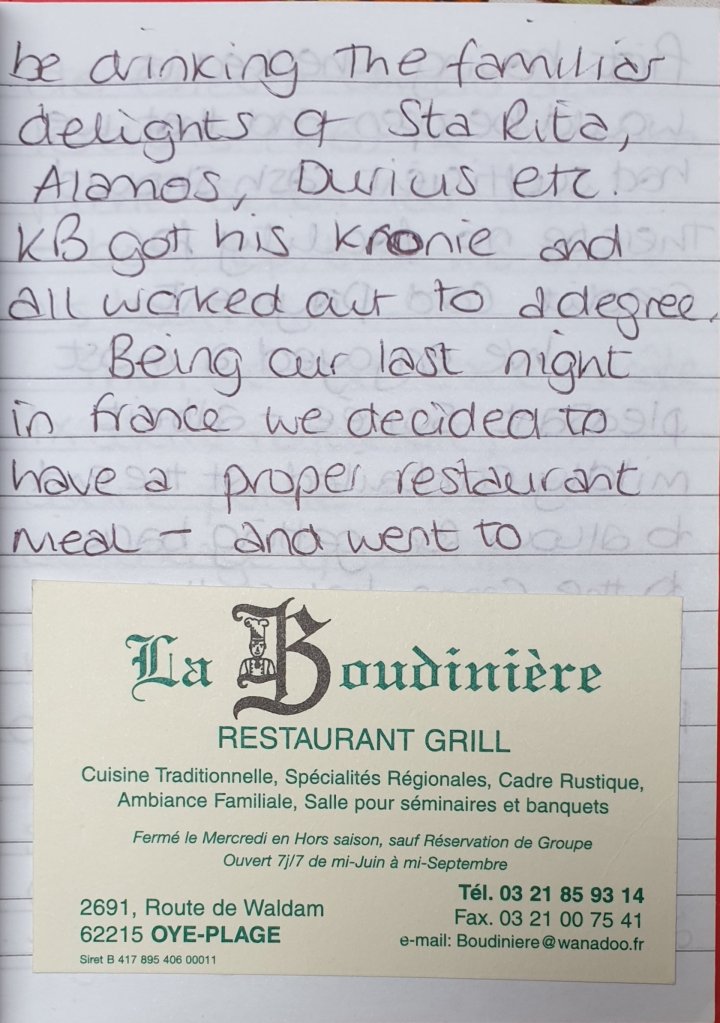 be drinking The familiar
delights of Sta Rita,
Alamos, Durius etc.
KB got his Kronie and
all worked out to a degree.
Being our last night
in france we decided to
have a proper restaurant
meal - and went to
La Boudinière
RESTAURANT GRILL
Cuisine Traditionnelle, Spécialités Régionales, Cadre Rustique,
Ambiance Familiale, Salle pour séminaires et banquets
Fermé le Mercredi en Hors saison, sauf Réservation de Groupe
Ouvert 7j/7 de mi-Juin à mi-Septembre
2691, Route de Waldam
62215 OYE-PLAGE
Siret B 417 895 406 00011
Tél. 03 21 85 93 14
Fax. 03 21 00 75 41
e-mail: Boudiniere@wanadoo.fr